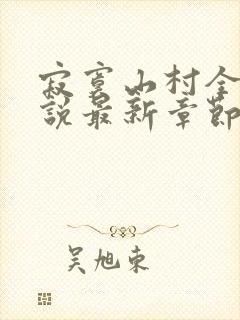 寂寞山村全
說最新章節
吴旭东